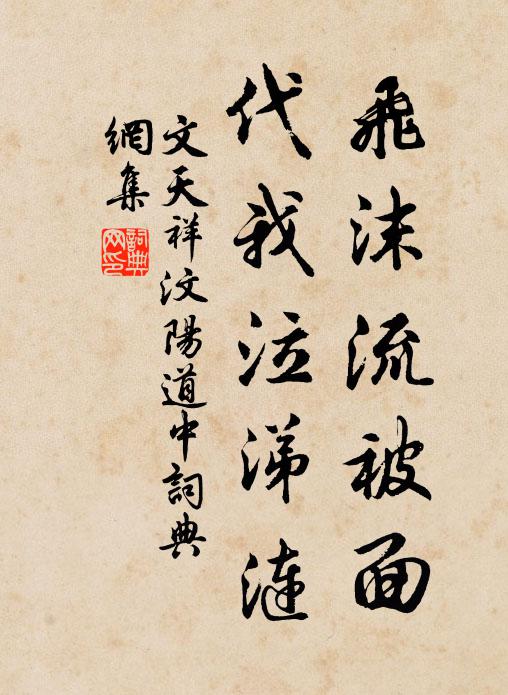 飛沫流被面
代我泣涕漣
文天祥汶陽道中詞典
網集
詞典網印